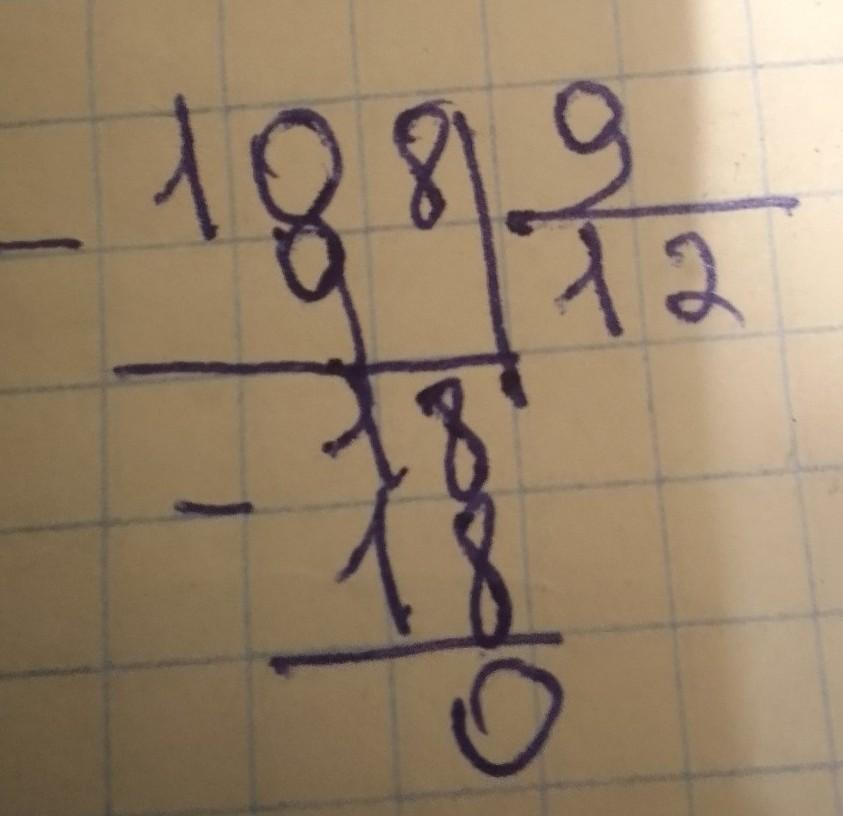 108 | 9
- 9 | 12
18
- 18
0